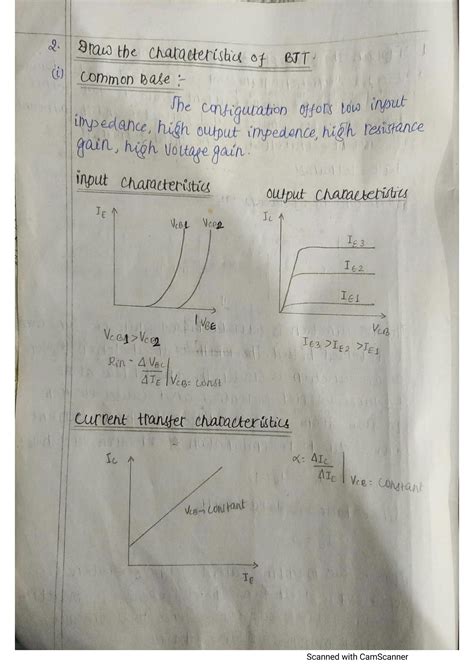 2. Draw the characteristics of BJT.
(i) Common Base :-
The configuration offers low input
impedance, high output impedence, high resistance
gain, high voltage gain.
input characteristics
output characteristics
IE
VCB1 VCB2
VBE
VCB1 > VCB2
Rin = ΔVBC / ΔIE | VCB = const
IC
IE3
IE2
IE1
VCB
IE3 > IE2 > IE1
Current transfer characteristics
IC
VCB → constant
IE
α = ΔIC / ΔIE | VCB = constant
Scanned with CamScanner